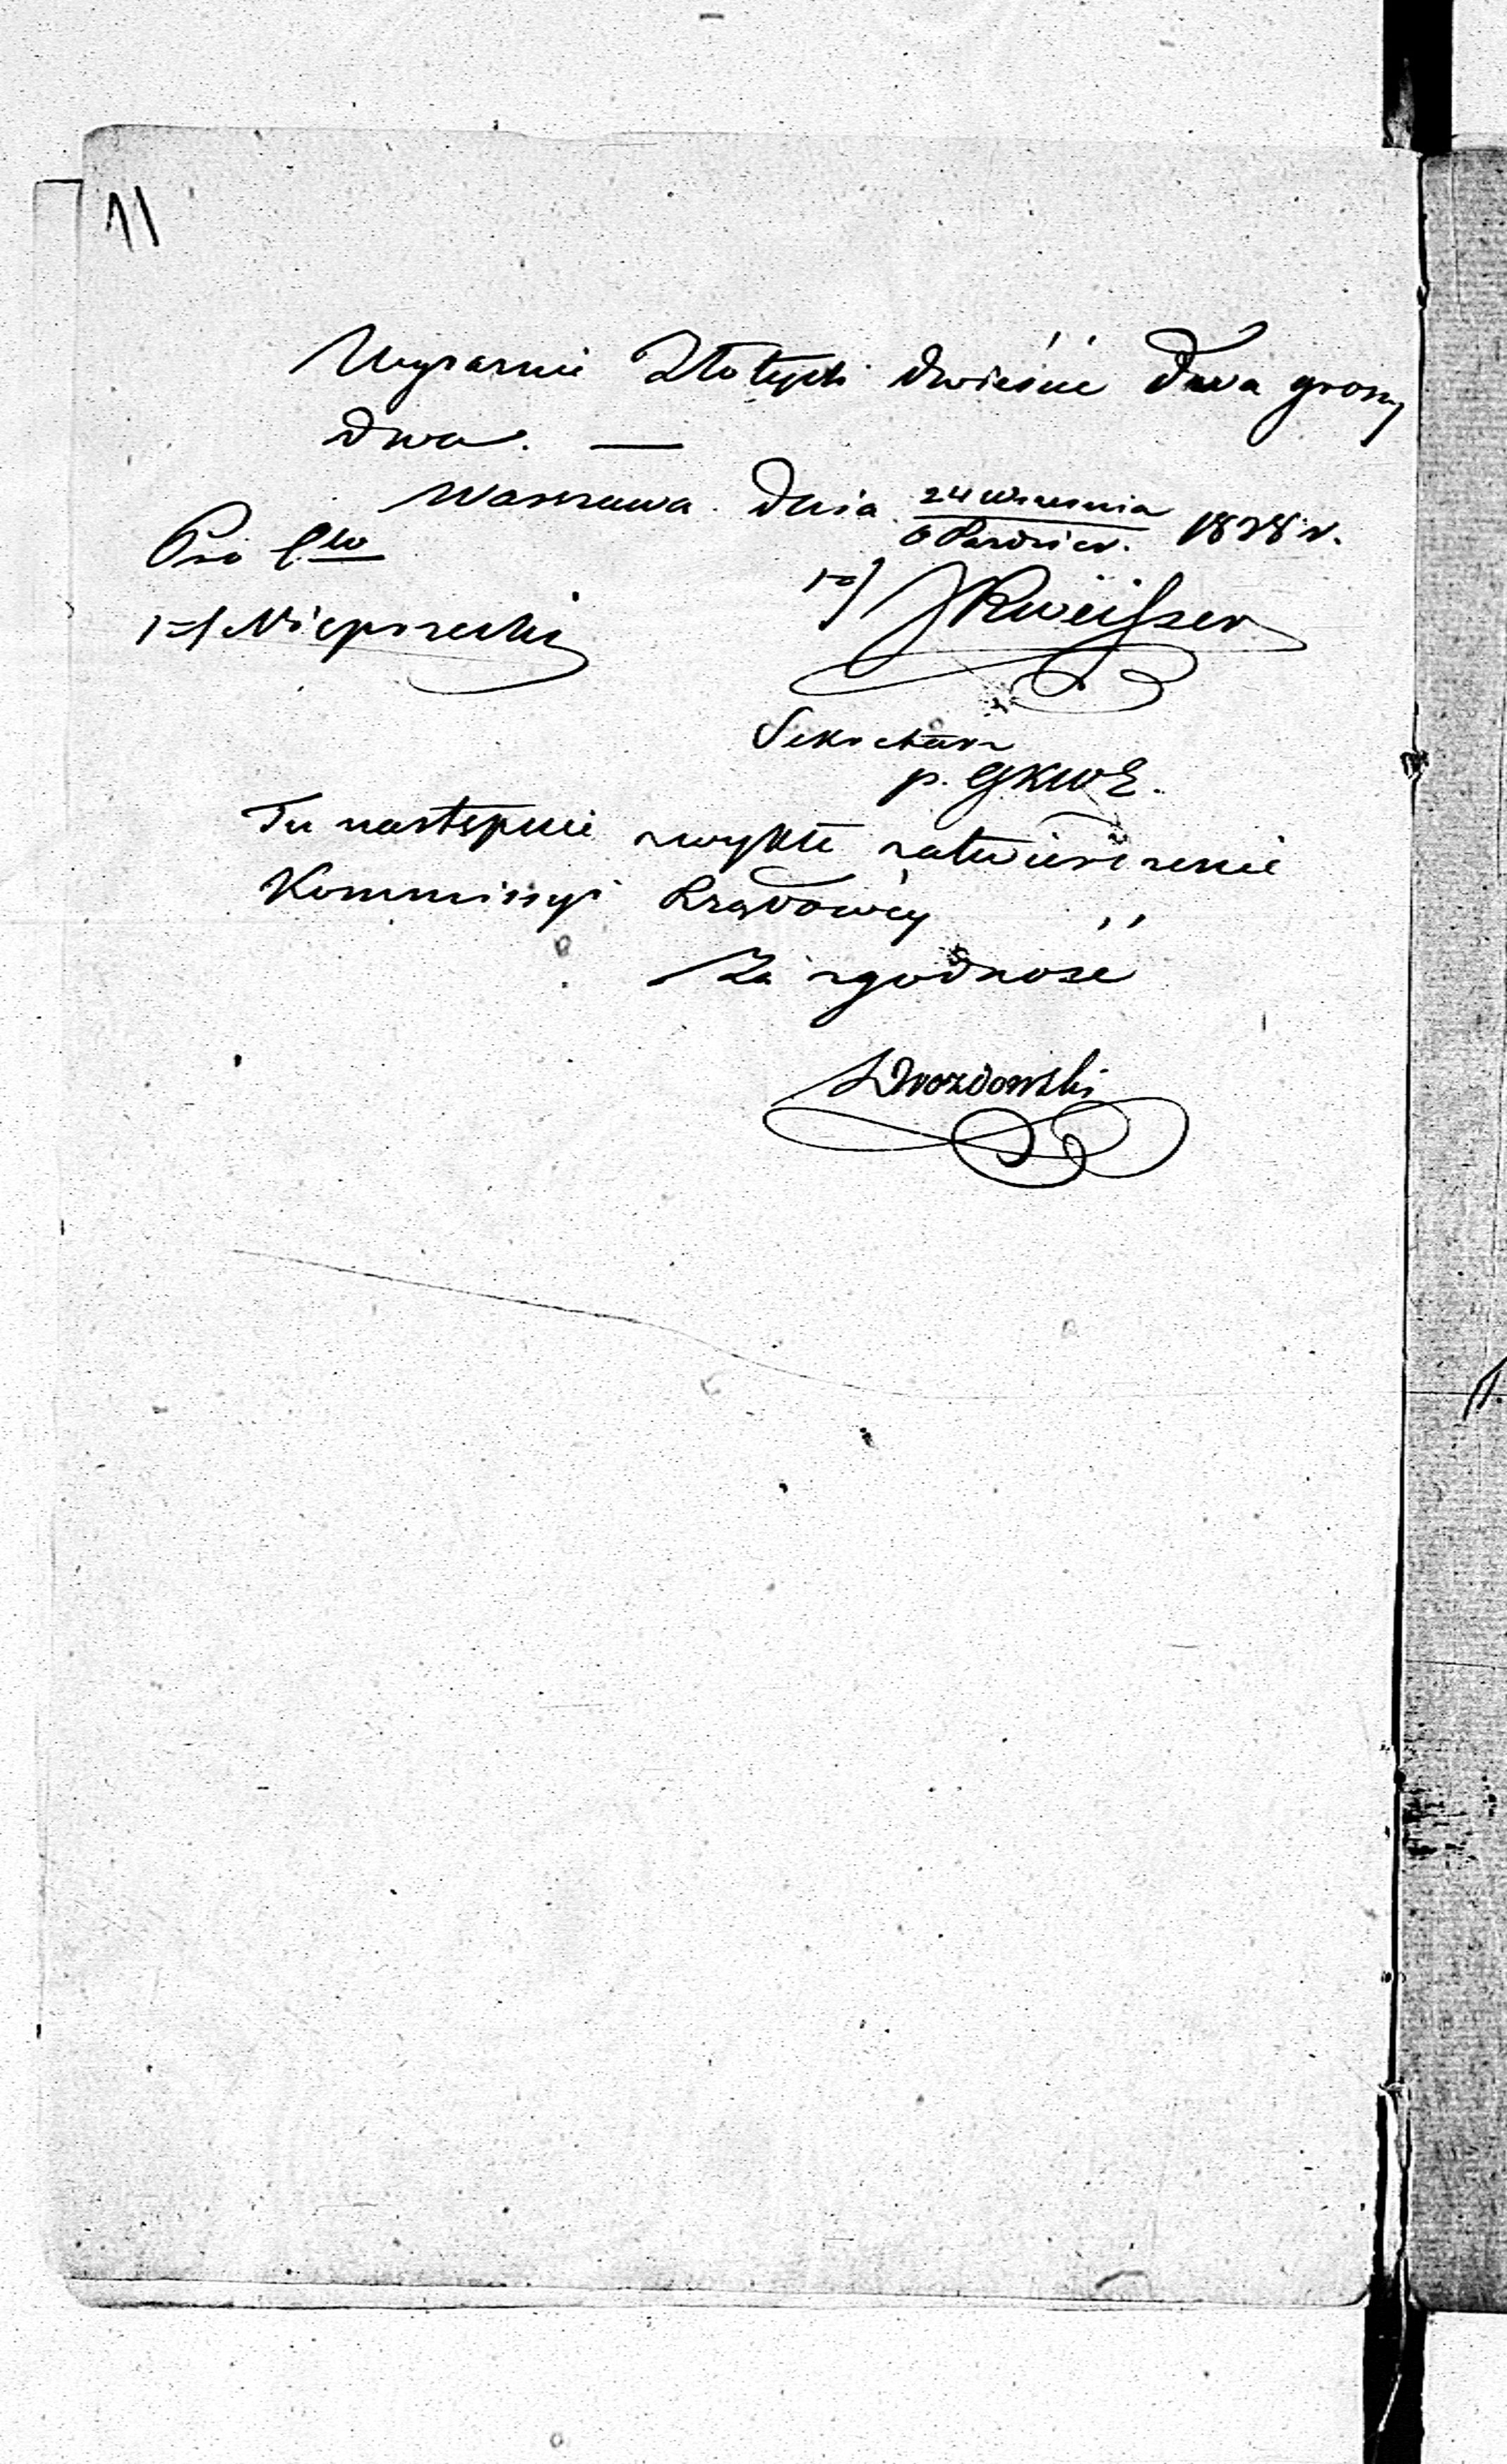 11
Wyraznie Złotych dwieście dwa groszy
dwa. —
Warszawa dnia 24 Września / 6 Paździer. 1838 r.
Pro
Nieporecki
Sekretarz
p. GKWE.
Tu następuie zwykłe zatwierdzenie
Kommissyi Rządowéy
Za zgodność
Drozdowski